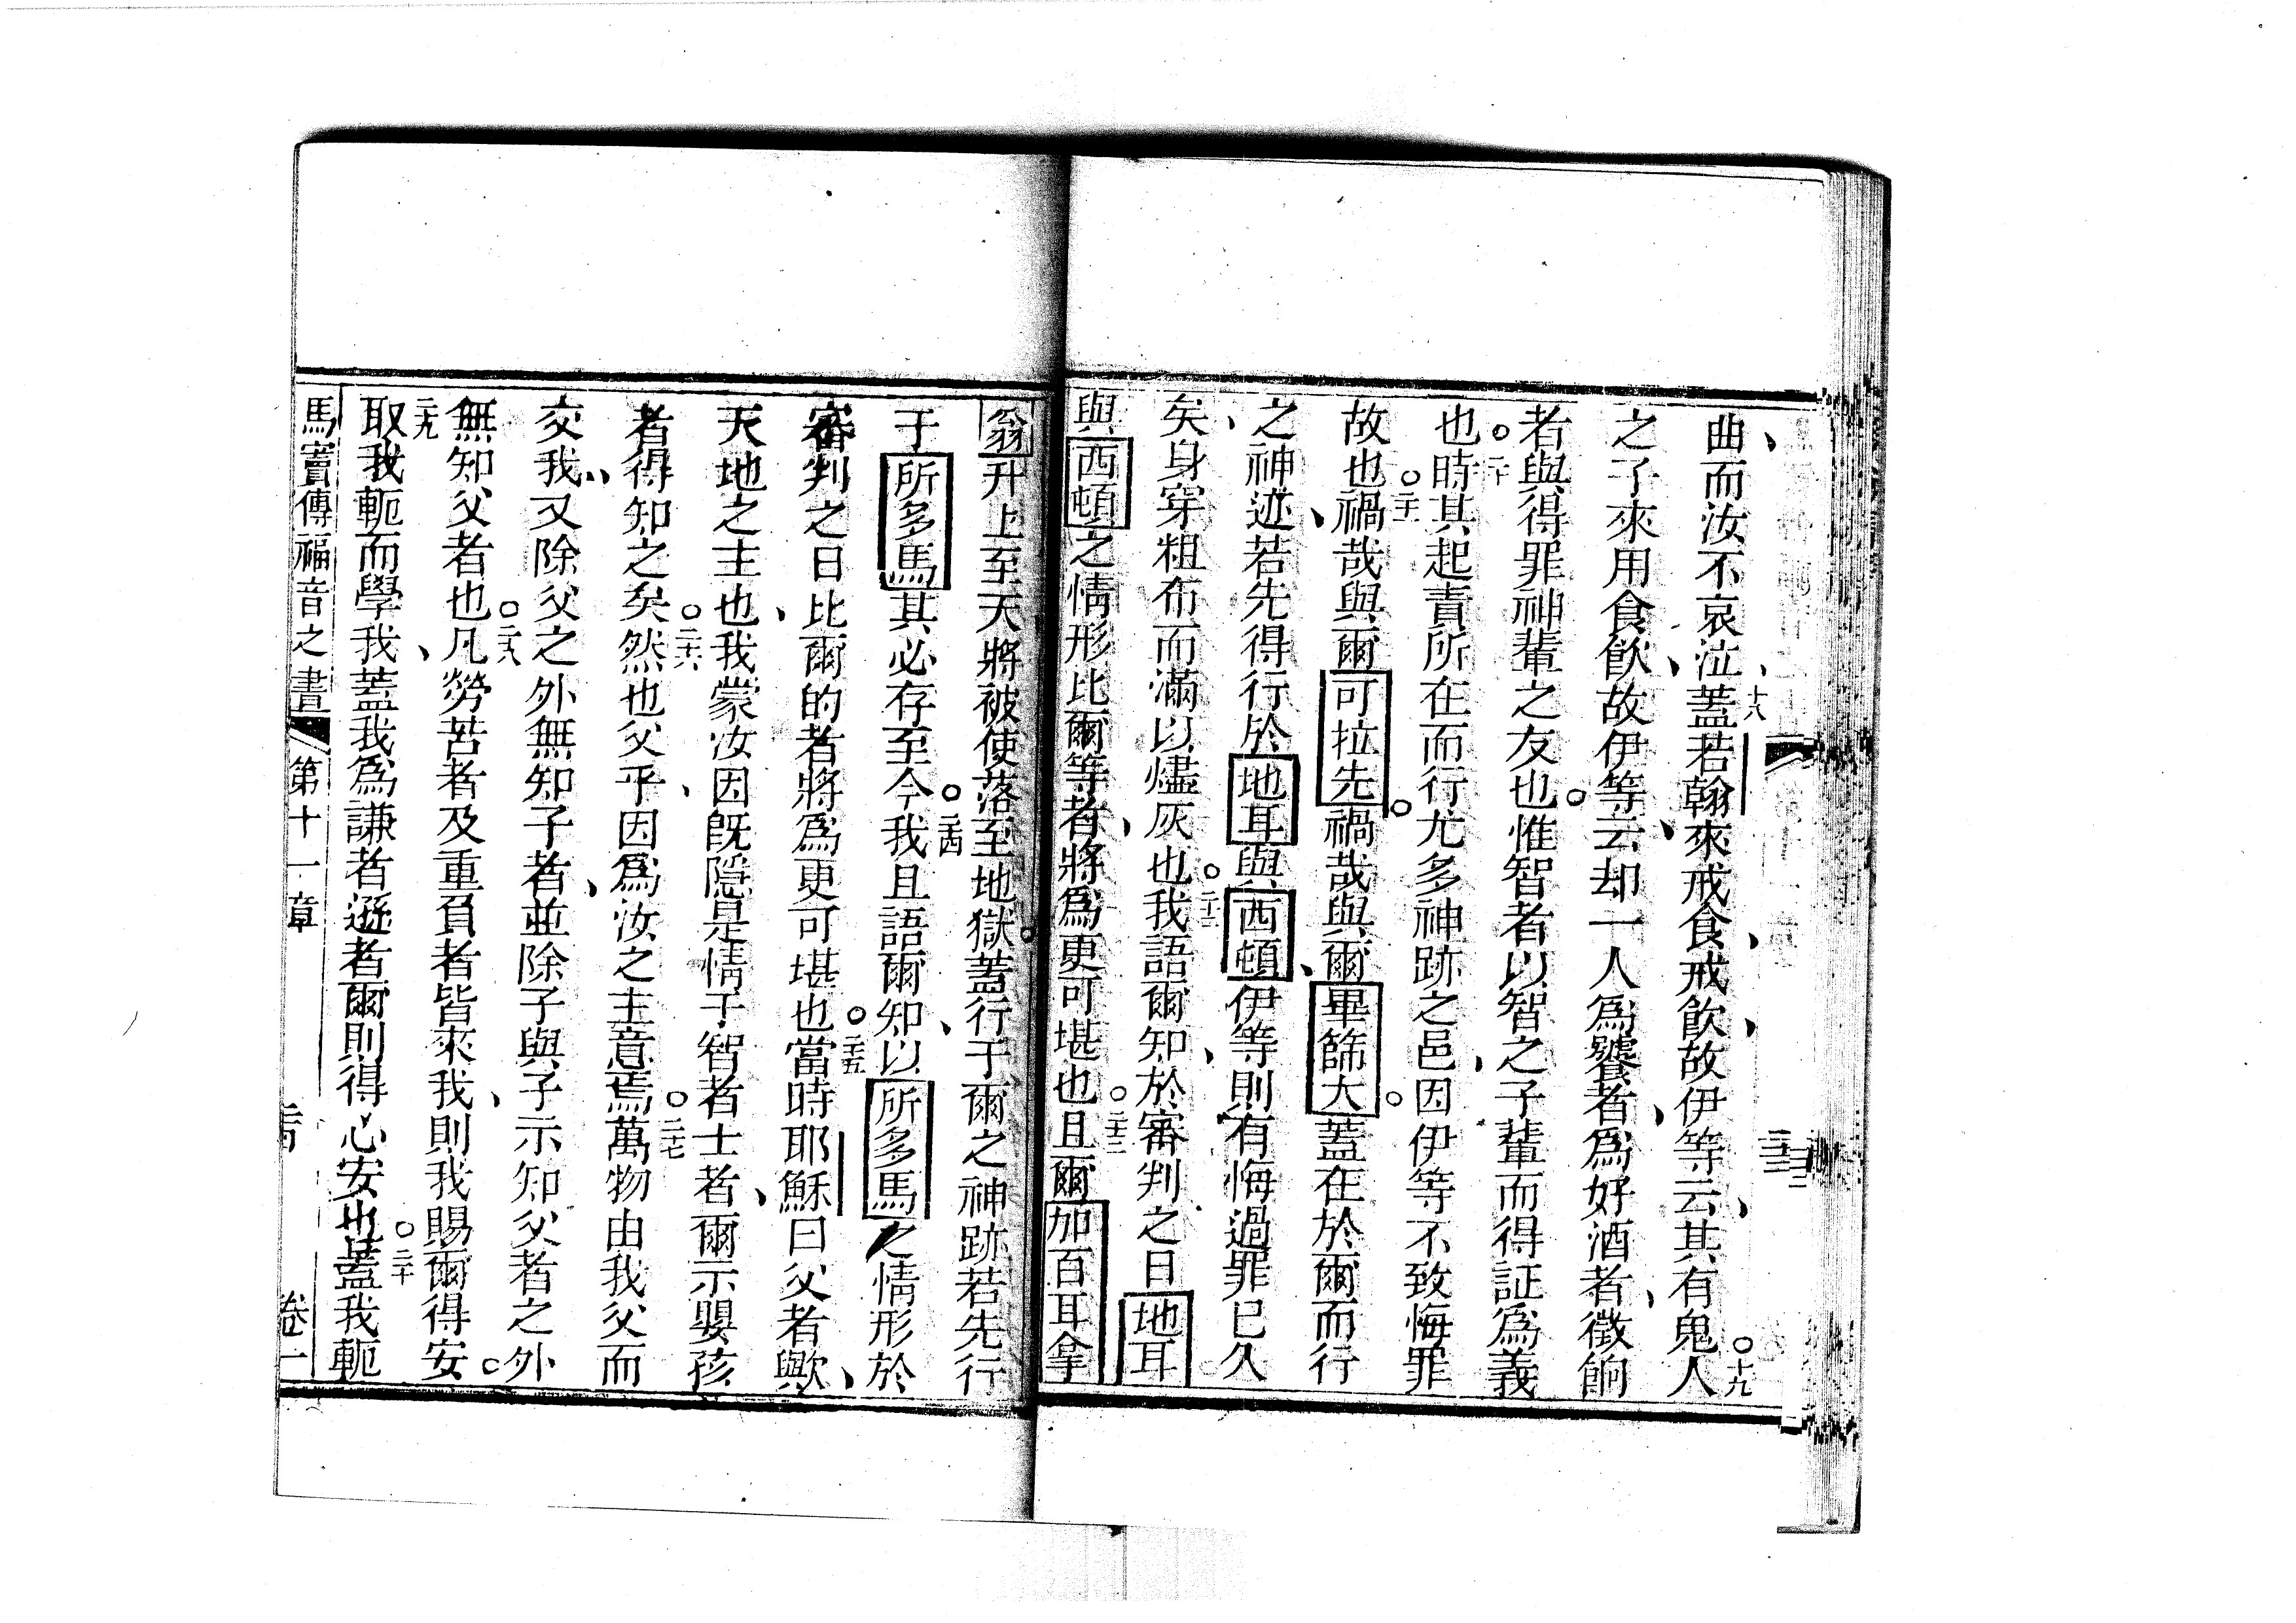 曲、而汝不哀泣、十八蓋若翰來戒食、戒飲、故伊等云、其有鬼。十九人
之子來用食飲、故伊等云、却一人爲饕者、爲好酒者、徵餉
者與得罪神輩之友也。惟智者以智之子輩而得証爲義
也。二十時其起責所在而行尤多神跡之邑、因伊等不致悔罪
故也。二十一禍哉與爾可拉先。禍哉與爾畢篩大。蓋在於爾而行
之神迹、若先得行於地耳與西頓、伊等則有悔過罪已久
矣、身穿粗布而滿以燼灰也。二十二我語爾知、於審判之日地耳
與西頓之情形比爾等者、將爲更可堪也。二十三且爾加百耳拿
翁升上至天將被使落至地獄。蓋行于爾之神跡若先行
于所多馬其必存至今。二十四我且語爾知、以所多馬之情形於
審判之日比爾的者將爲更可堪也。二十五當時耶穌曰父者歟、
天地之主也、我蒙汝因既隱是情于智者士者、爾示嬰孩
者得知之矣。二十六然也父乎、因爲汝之主意焉。二十七萬物由我父而
交我、又除父之外無知子者、並除子與子示知父者之外。
無知父者也。二十八凡勞苦者及重負者皆來我、則我賜爾得安
二十九取我軛而學我、蓋我爲謙者遜者爾則得心安也。三十蓋我軛
馬竇傳福音之書 第十一章 卷一